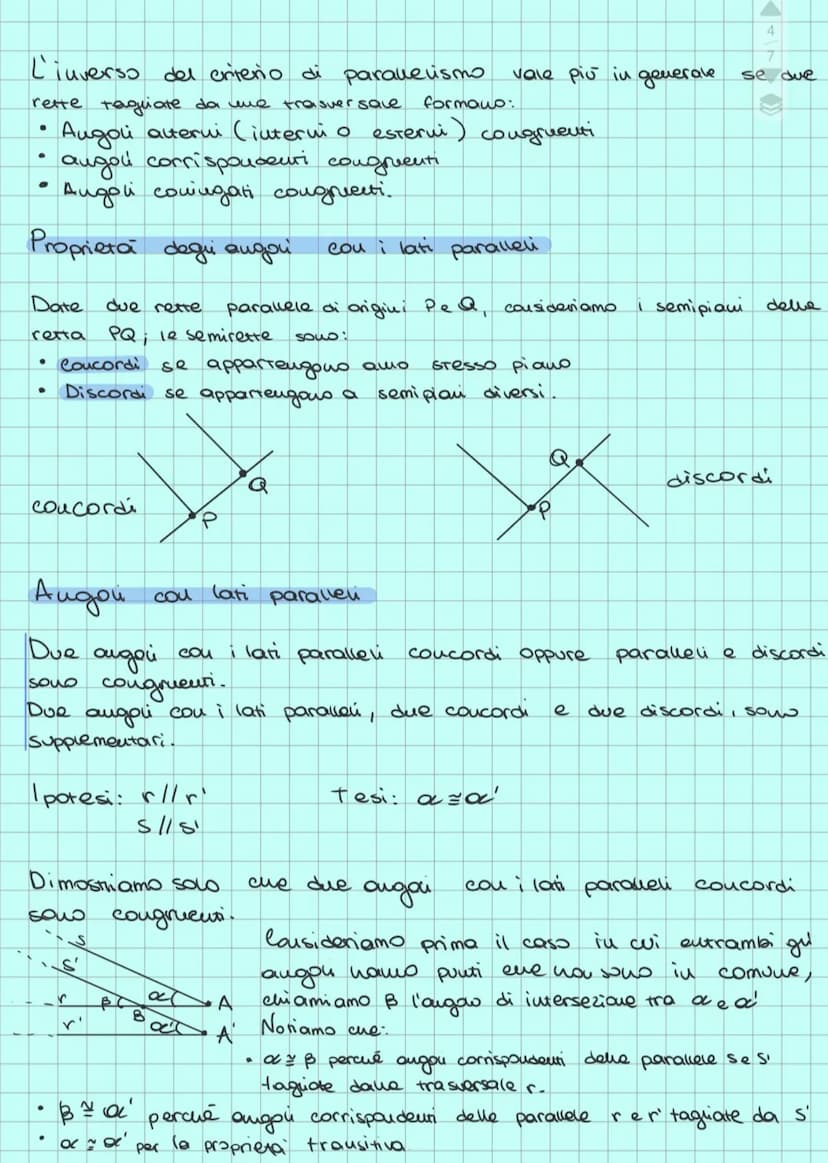 4
7
L'inverso del criterio di parallelismo vale più in generale se due
rette tagliate da una trasversale formano:
• Angoli alterni (interni o esterni) congruenti
• angoli corrispondenti congruenti
• Angoli coniugati congruenti.
Proprietà degli angoli con i lati paralleli
Date due rette parallele di origini P e Q, consideriamo i semipiani della
retta PQ; le semirette sono:
• Concordi se appartengono allo stesso piano
• Discordi se appartengono a semipiani diversi.
concordi P Q
Q P discordi
Angoli con lati paralleli
Due angoli con i lati paralleli concordi oppure paralleli e discordi
sono congruenti.
Due angoli con i lati paralleli, due concordi e due discordi, sono
supplementari.
Ipotesi: r//r' Tesi: α≅α'
s//s'
Dimostriamo solo che due angoli con i lati paralleli concordi
sono congruenti.
s
s'
r β α A
B
r' α' A'
Consideriamo prima il caso in cui entrambi gli
angoli hanno punti che non sono in comune,
chiamiamo β l'angolo di intersezione tra α e α'
Notiamo che:
• α ≅ β perché angoli corrispondenti delle parallele s e s'
tagliate dalla trasversale r.
• β ≅ α' perché angoli corrispondenti delle parallele r e r' tagliate da s'
• α ≅ α' per la proprietà transitiva